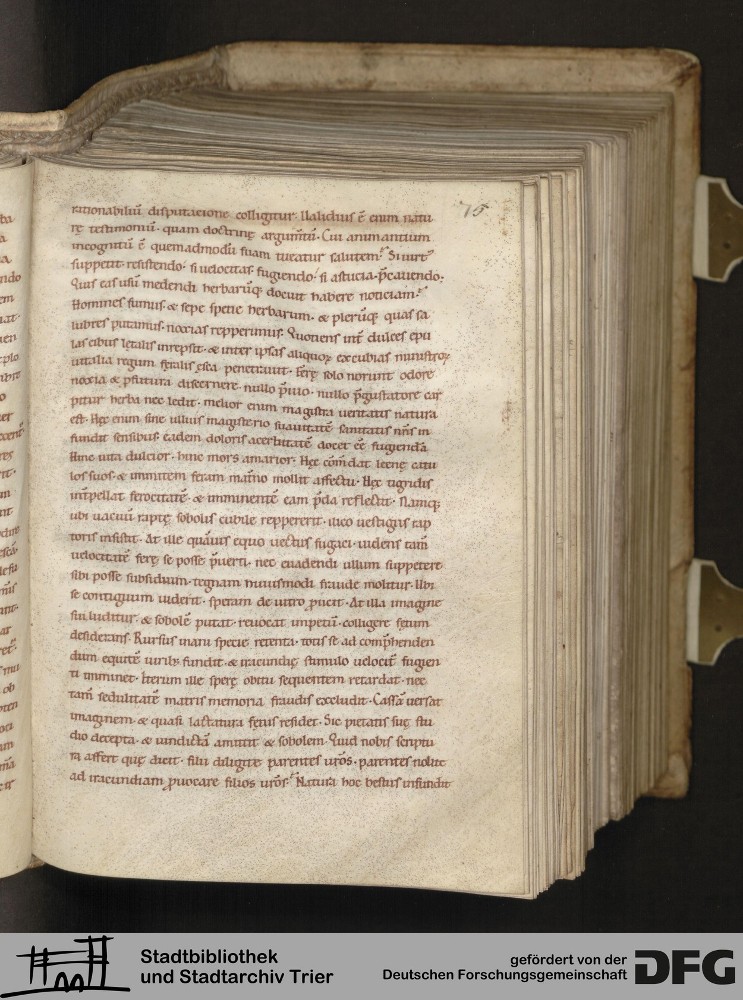 75
rationabiliū disputatione colligitur. Ualidius ē enim natu
rę testimoniū. quam doctrinę argum̄tū. Cui animantium
incognitū ē quemadmodū suam tueatur salutem? Si uirt᾽
suppetit. resistendo. si uelocitas. fugiendo. si astucia. p̄cauendo.
Quis eas usū medendi herbarūq; docuit habere noticiam?
Homines sumus. & sepe specie herbarum. & plerūq; quas sa
lubres putamus. noxias repperimus. Quotiens int̄ dulces epu
las cibus lętalis inrepsit. & inter ipsas aliquoꝝ excubias ministroꝝ
uitalia regum feralis ęsca penetrauit. Ferę solo norunt odore
noxia & p̄futura discernere. nullo p̄uio. nullo p̄gustatore car
pitur herba nec ledit. melior enim magistra ueritatis natura
est. Hęc enim sine ullius magisterio suauitatē sanitatis nr̄is in
fundit sensibus. eadem doloris acerbitatē docet eē fugiendā.
Hinc uita dulcior. hinc mors amarior. Hęc cōm̄dat leenę catu
los suos. & immitem feram mat̄no mollit affectu. Hęc tigridis
int̄pellat ferocitatē. & imminentē eam p̄da reflectit. Namq;
ubi uacuū raptę sobolis cubile reppererit. ilico uestigiis rap
toris insistit. At ille quāuis equo uectus fugaci. uidens tam̄
uelocitatē ferę se posse p̄uerti. nec euadendi ullum suppetere
sibi posse subsidium. tegnam huiusmodi fraude molitur. Ubi
se contiguum uiderit. speram de uitro p̄icit. At illa imagine
sui luditur. & sobolē putat. reuocat impetū. colligere fętum
desiderans. Rursus inani specie retenta. totis se ad comp̄henden
dum equitē uirib; fundit. & iracundię stimulo uelocit̄ fugien
ti imminet. Iterum ille sperę obitu sequentem retardat. nec
tam̄ sedulitatē matris memoria fraudis excludit. Cassā uersat
imaginem. & quasi lactatura fętus residet. Sic pietatis suę stu
dio decepta. & uindictā amittit & sobolem. Quid nobis scriptu
ra affert quę dicit. filii diligite parentes ur̄os. parentes nolite
ad iracundiam ꝓuocare filios ur̄os? Natura hoc bestiis infundit
Stadtbibliothek
und Stadtarchiv Trier
gefördert von der
Deutschen Forschungsgemeinschaft
DFG